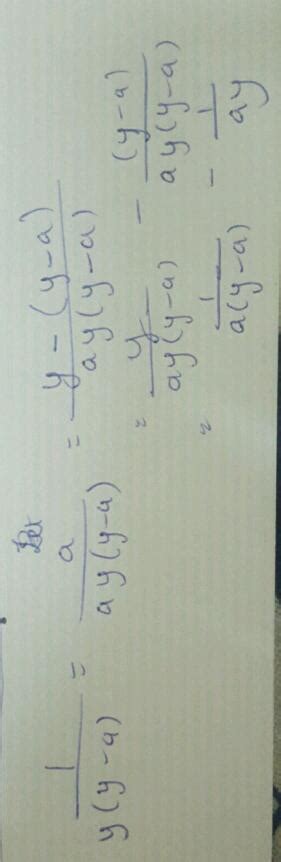 1/(y(y-a)) = a/(ay(y-a)) = (y-(y-a))/(ay(y-a))
= y/(ay(y-a)) - (y-a)/(ay(y-a))
= 1/(a(y-a)) - 1/(ay)